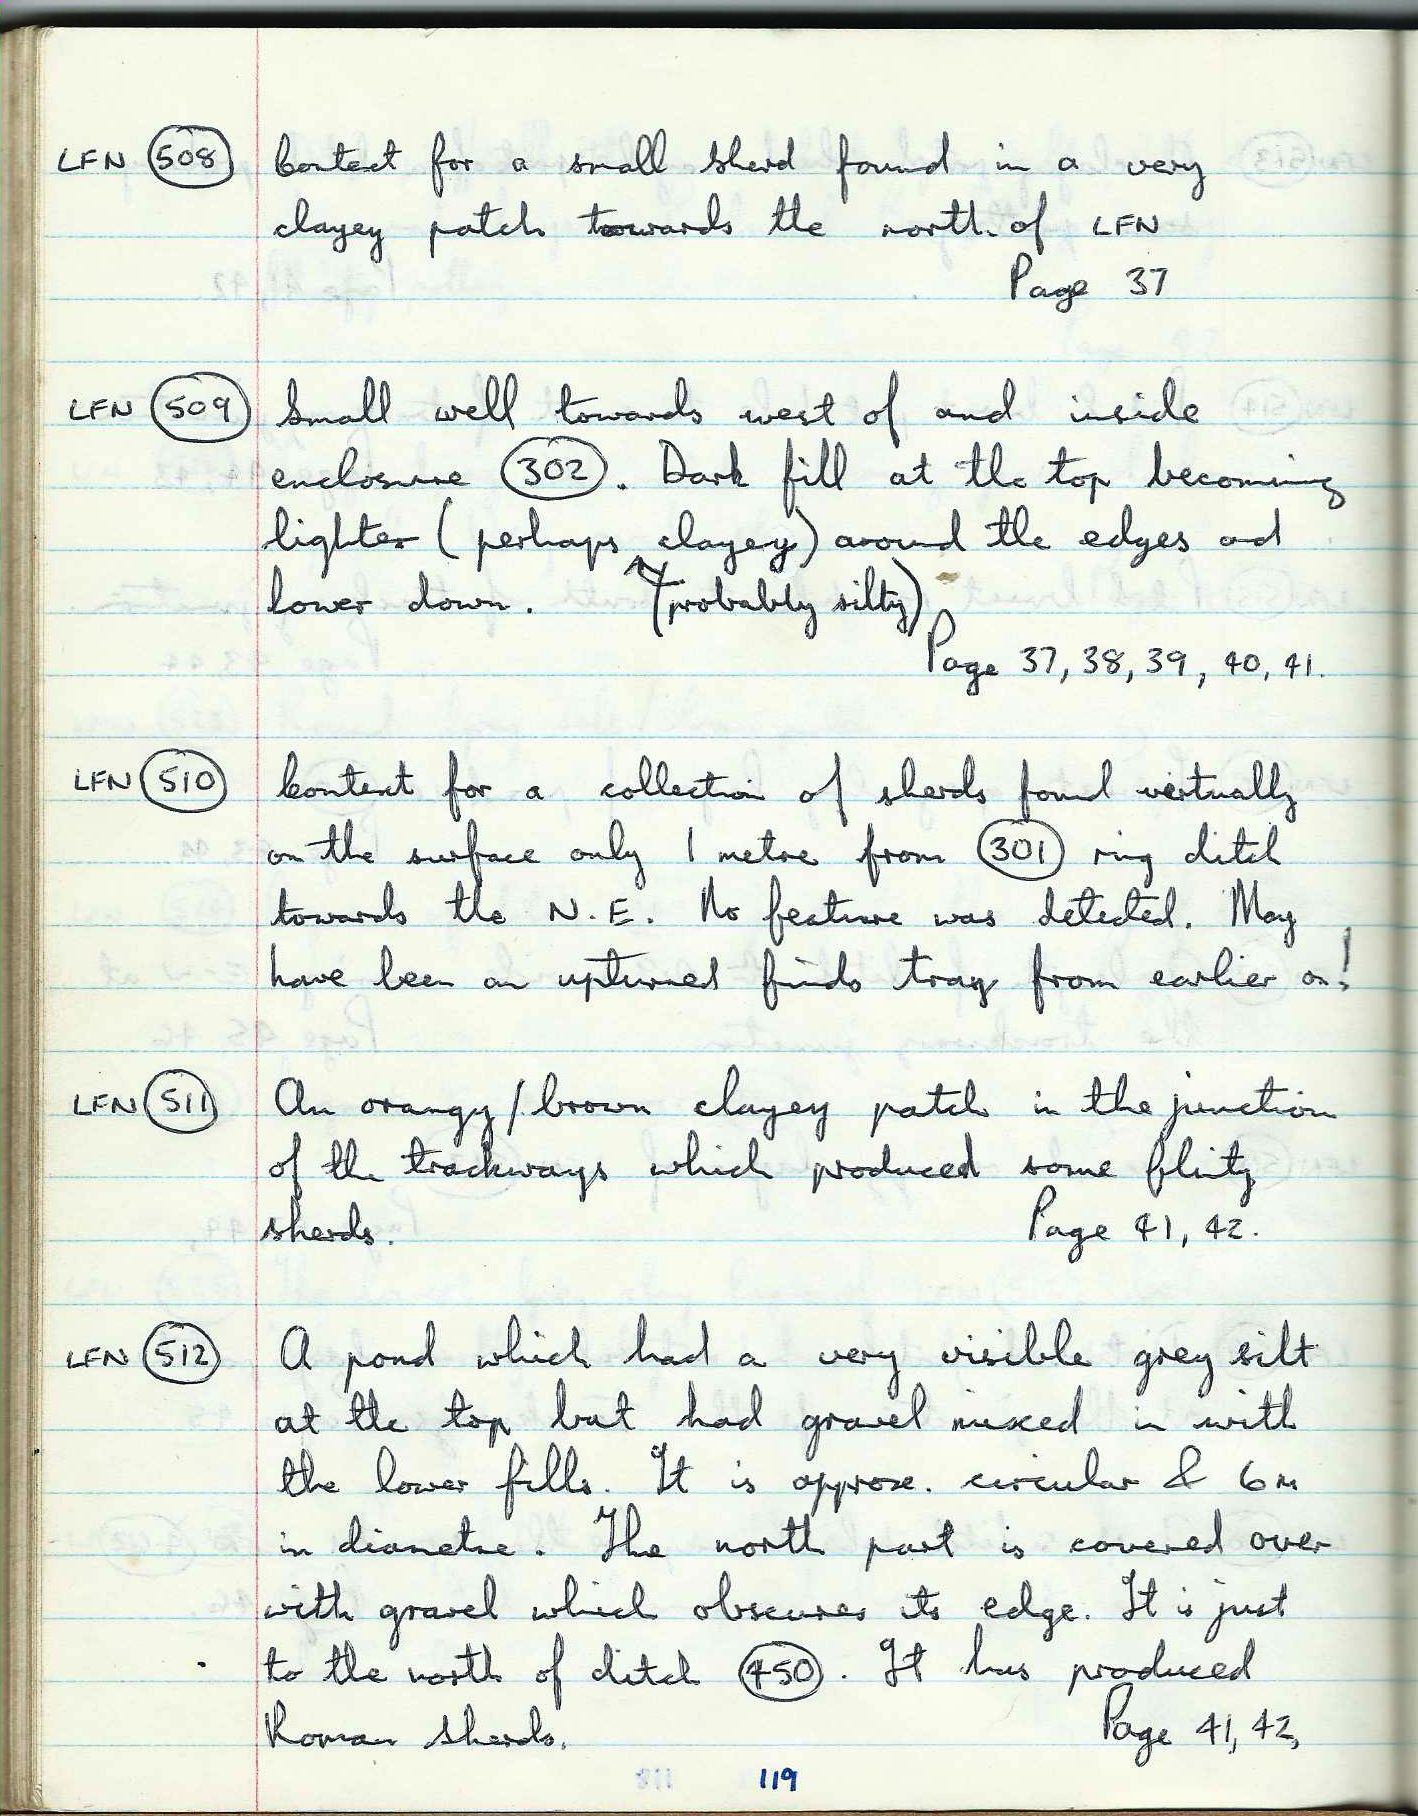 LFN 508 Context for a small sherd found in a very
clayey patch towards the north of LFN
Page 37
LFN 509 Small well towards west of and inside
enclosure 302. Dark fill at the top becoming
lighter (perhaps clayey) around the edges and
lower down. (probably silty)
Page 37, 38, 39, 40, 41.
LFN 510 Context for a collection of sherds found virtually
on the surface only 1 metre from 301 ring ditch
towards the N.E. No feature was detected. May
have been an upturned finds tray from earlier on!
LFN 511 An orangy/brown clayey patch in the junction
of the trackways which produced some flinty
sherds. Page 41, 42.
LFN 512 A pond which had a very visible grey silt
at the top but had gravel mixed in with
the lower fills. It is approx. circular & 6m
in diametre. The north part is covered over
with gravel which obscures its edge. It is just
to the north of ditch 450. It has produced
Roman sherds. Page 41, 42,
119